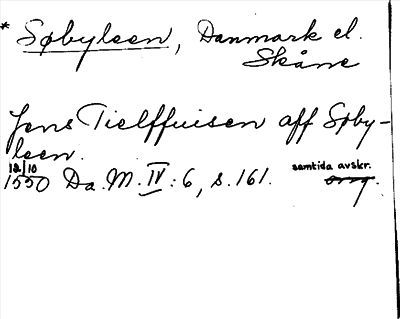 * Søbyleen, Danmark el.
Skåne
Jens Tielffuisen aff Søby-
leen.
12/10 samtida avskr.
1550 Da. M. IV: 6, s. 161. orig.